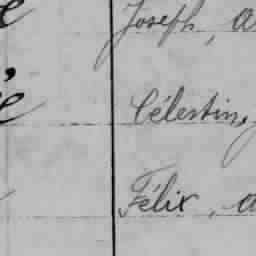 Joseph, a
Célestin,
Félix, a